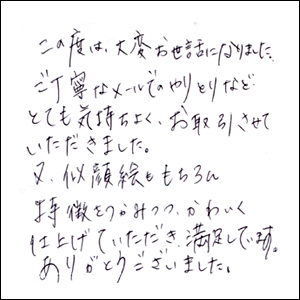 この度は、大変お世話になりました。
ご丁寧なメールでのやりとりなど
とても気持ちよく、お取引させて
いただきました。
又、似顔絵ももちろん
特徴をつかみつつ、かわいく
仕上げていただき、満足しています。
ありがとうございました。